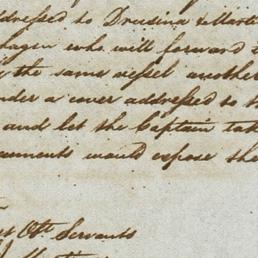 dressed to Drusina & Marti
hagen who will forward t
the same vessel another
nder a cover addressed to th
and let the Captain tak
cuments would expose the
Obt Servants